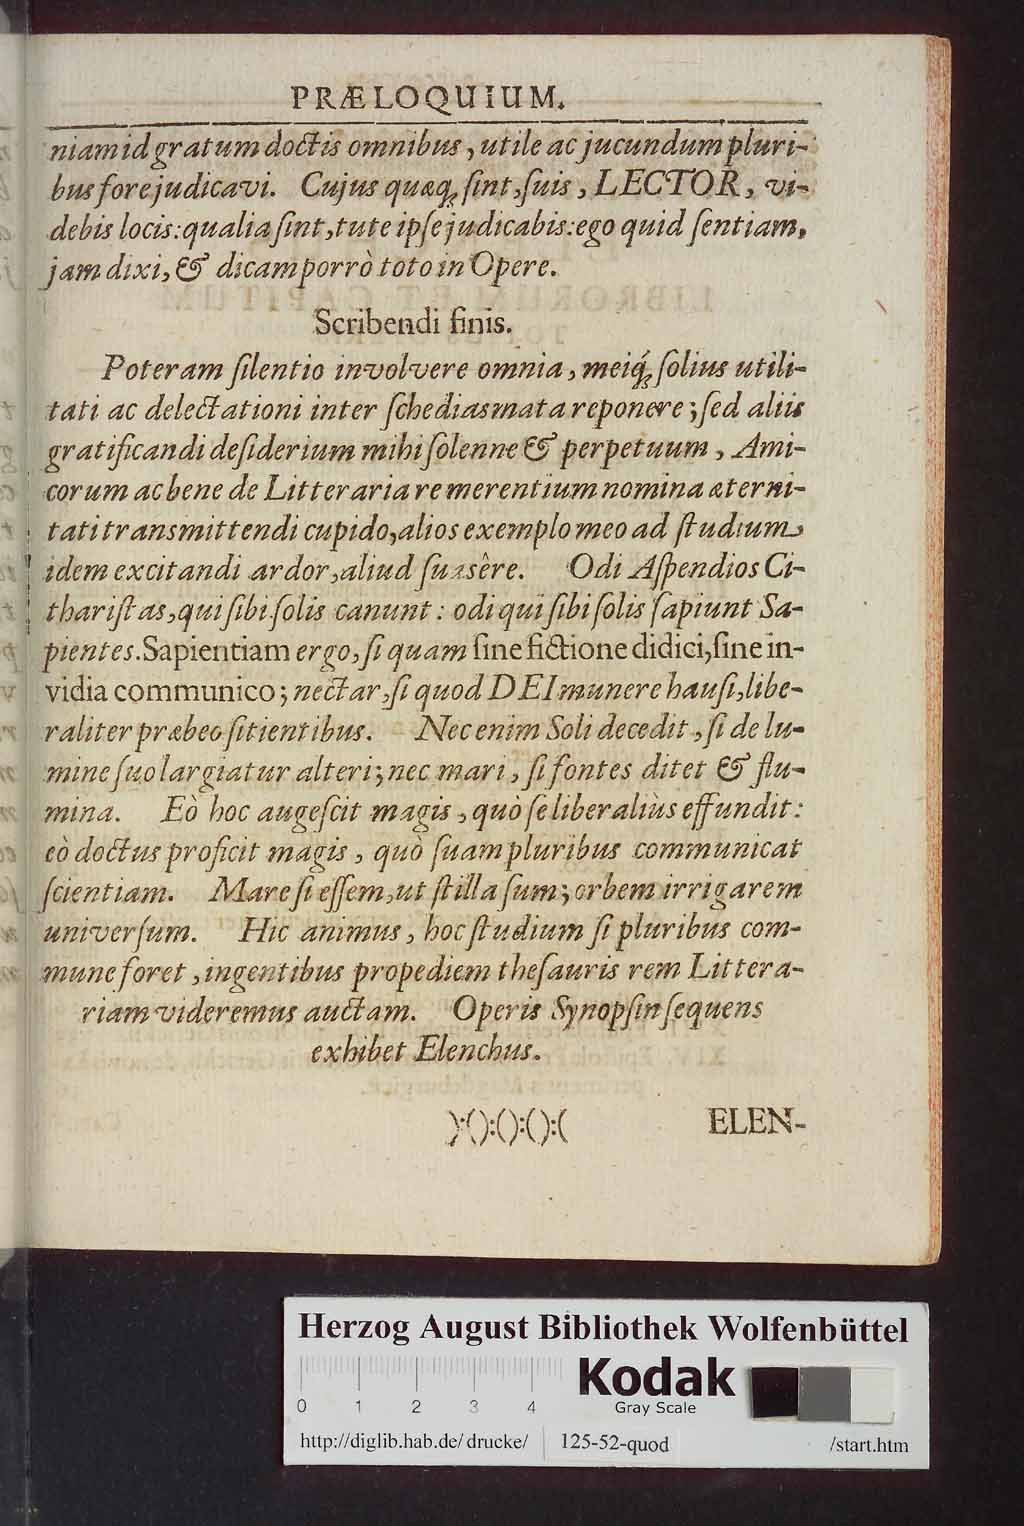 PRÆLOQUIUM.
niam id gratum doctis omnibus, utile ac jucundum pluri-
bus fore judicavi. Cujus quæq; ſint, ſuis, LECTOR, vi-
debis locis: qualia ſint, tute ipſe judicabis: ego quid ſentiam,
jam dixi, & dicam porrò toto in Opere.
Scribendi finis.
Poteram ſilentio involvere omnia, meiq́; ſolius utili-
tati ac delectationi inter ſchediasmata reponere; ſed aliis
gratificandi deſiderium mihi ſolenne & perpetuum, Ami-
corum ac bene de Litteraria re merentium nomina æterni-
tati transmittendi cupido, alios exemplo meo ad ſtudium
idem excitandi ardor, aliud ſuasêre. Odi Aſpendios Ci-
thariſtas, qui ſibi ſolis canunt: odi qui ſibi ſolis ſapiunt Sa-
pientes. Sapientiam ergo, ſi quam ſine fictione didici, ſine in-
vidia communico; nectar, ſi quod DEI munere hauſi, libe-
raliter præbeo ſitientibus. Nec enim Soli decedit, ſi de lu-
mine ſuo largiatur alteri; nec mari, ſi fontes ditet & flu-
mina. Eò hoc augeſcit magis, quò ſe liberaliùs effundit:
eò doctus proficit magis, quò ſuam pluribus communicat
ſcientiam. Mare ſi eſſem, ut ſtilla ſum; orbem irrigarem
univerſum. Hic animus, hoc ſtudium ſi pluribus com-
mune foret, ingentibus propediem theſauris rem Littera-
riam videremus auctam. Operis Synopſin ſequens
exhibet Elenchus.
):():():():(
ELEN-
Herzog August Bibliothek Wolfenbüttel
Kodak
Gray Scale
0 1 2 3 4
http://diglib.hab.de/drucke/ 125-52-quod /start.htm